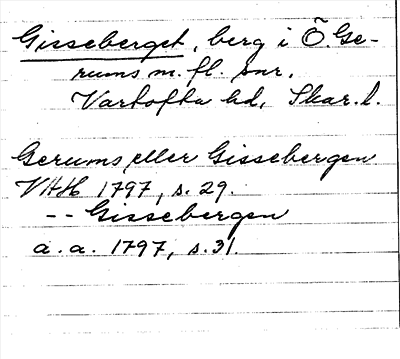 Gisseberget, berg i Ö. Ge-
rums m. fl. snr,
Vartofta hd, Skar. l.
Gerums eller Gissebergen
VHH 1797, s. 29.
-- Gissebergen
a. a. 1797, s. 31.